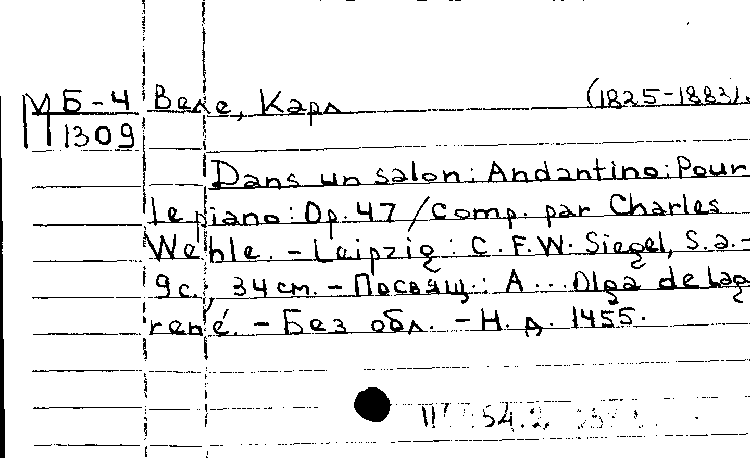 МБ-4 Веле, Карл (1825-1883).
1309
Dans un salon: Andantino: Pour
le piano: Op. 47 / Comp. par Charles
Wehle. - Leipzig: C.F.W. Siegel, S.a. -
9с.; 34 см. - Посвящ.: A... Olga de Lag
rené. - Без обл. - Н.д. 1455.